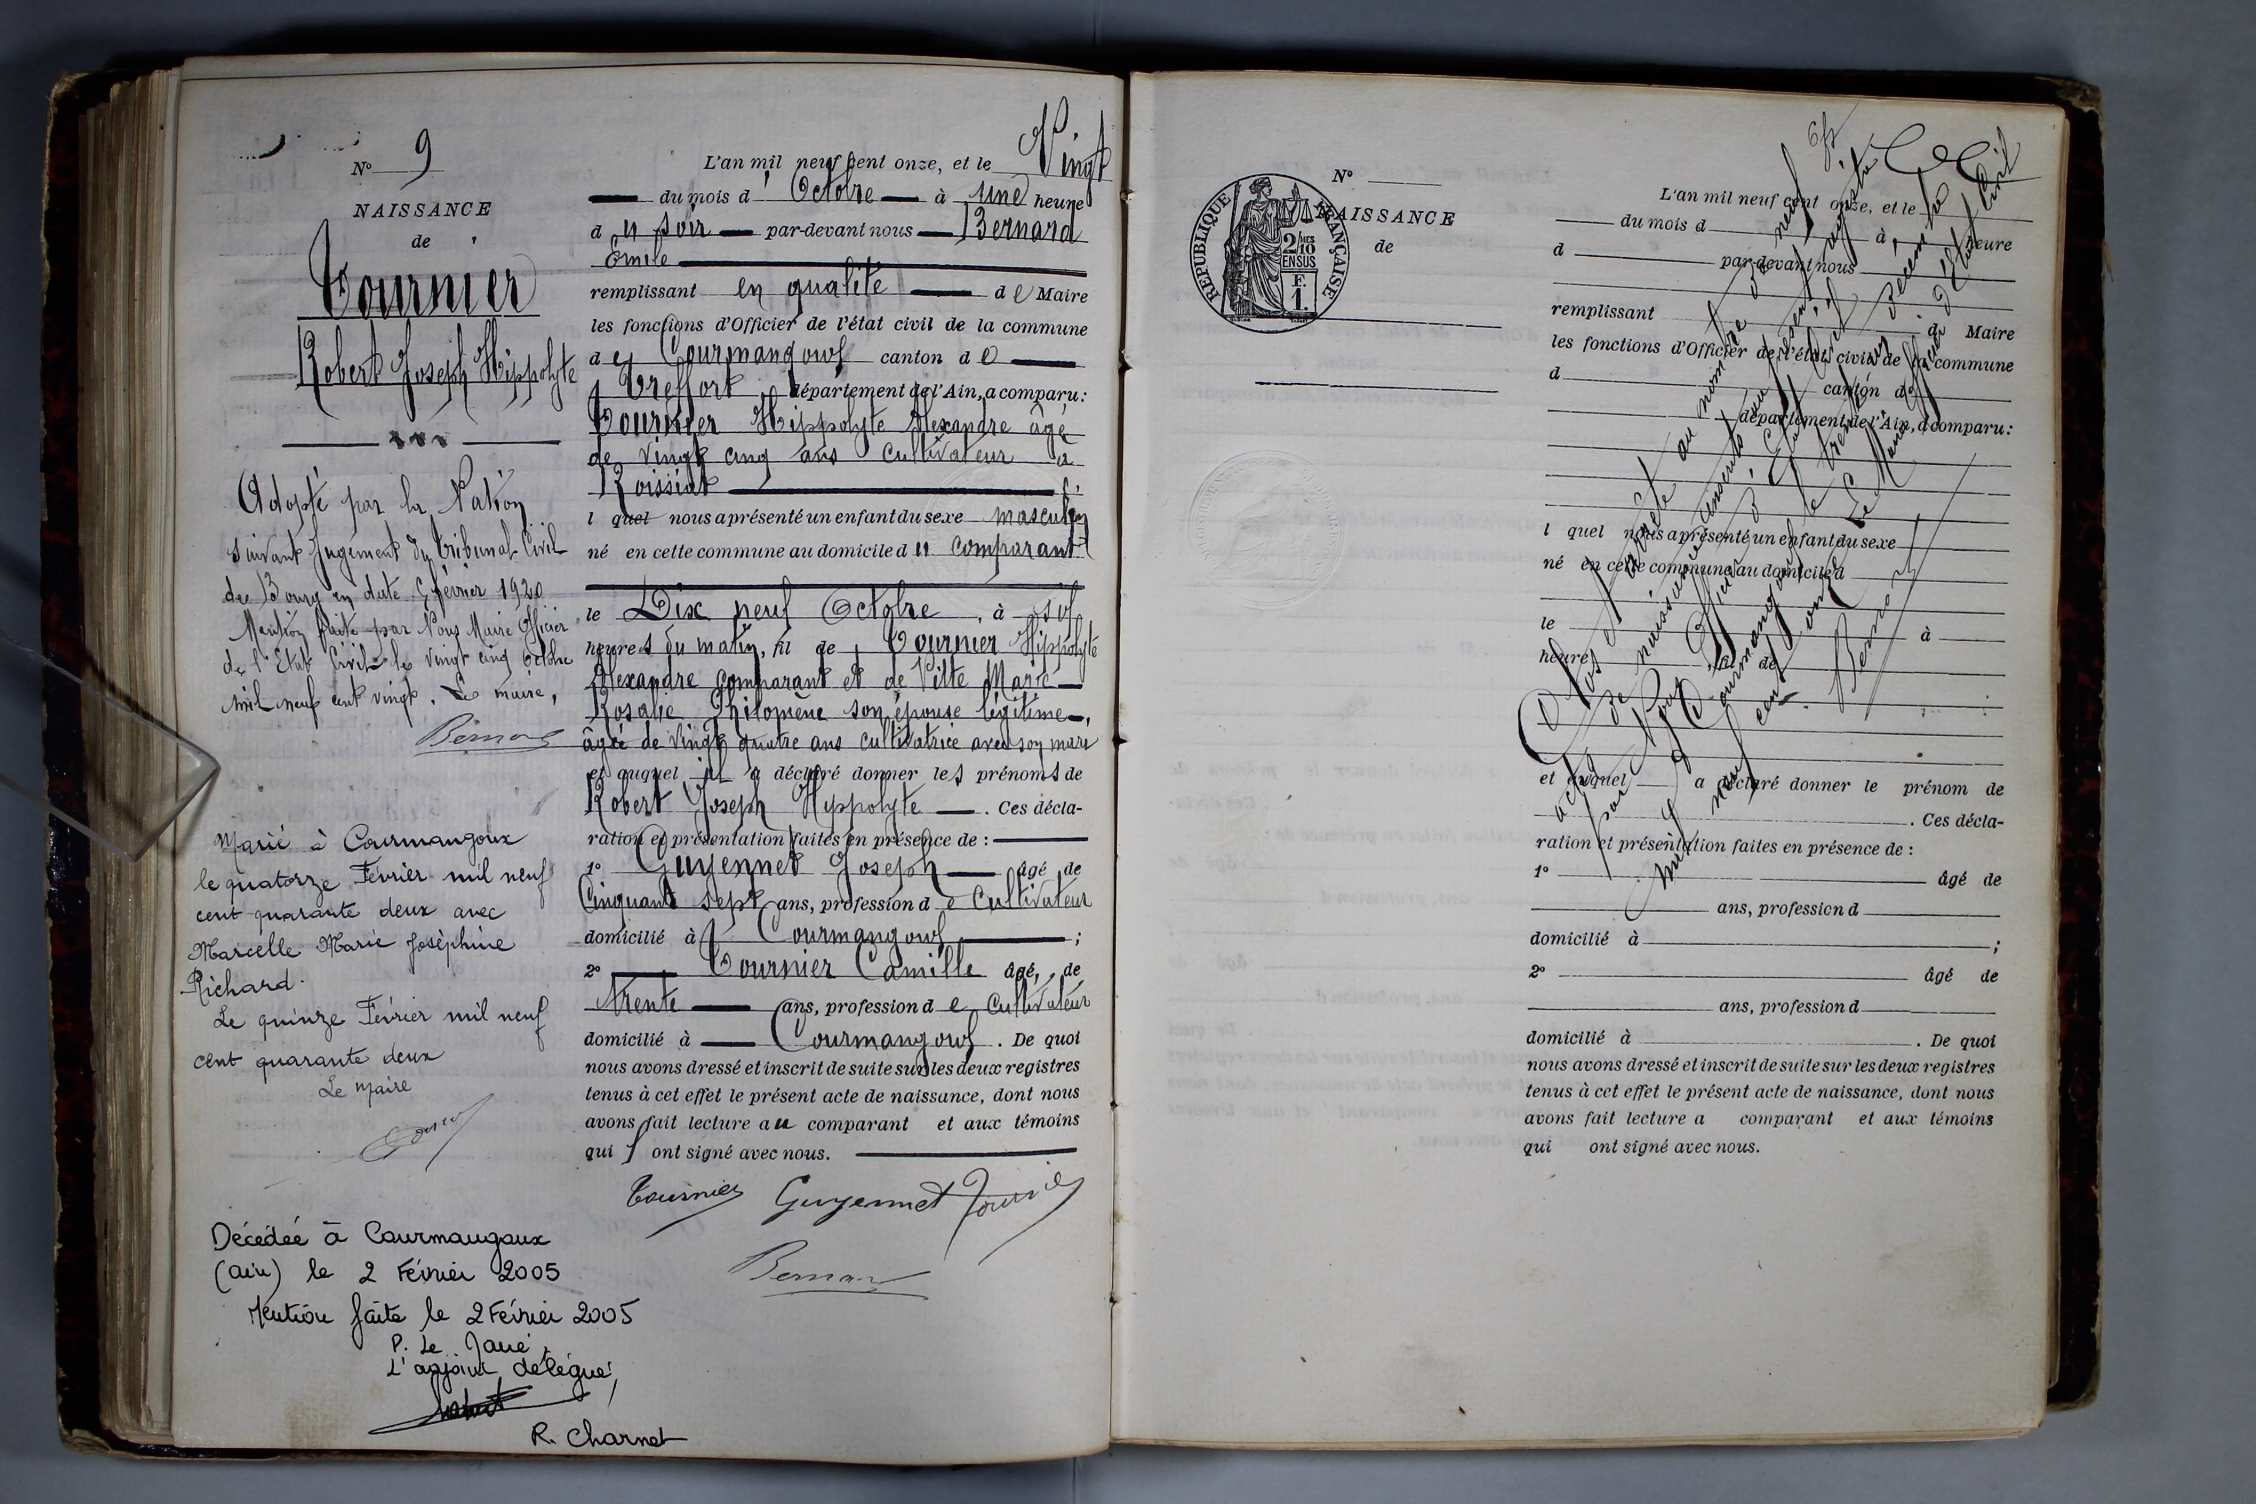 N° 9
NAISSANCE
de
Tournier
Robert Joseph Hippolyte
Adopté par la Nation
suivant Jugement du tribunal Civil
de Bourg en date 5 février 1920
Mention faite par Nous Maire Officier
de l'Etat Civil le vingt cinq Octobre
mil neuf cent vingt. Le maire,
Bernard
Marié à Courmangoux
le quatorze Février mil neuf
cent quarante deux avec
Marcelle Marie Joséphine
Richard.
Le quinze Février mil neuf
cent quarante deux
Le Maire
Décédée à Courmangoux
(Ain) le 2 Février 2005
Mention faite le 2 Février 2005
P. Le Maire,
L'adjoint délégué,
R. Charnet
L'an mil neuf cent onze, et le Vingt
du mois d'Octobre à une heure
du soir par-devant nous Bernard
Emile
remplissant en qualité de Maire
les fonctions d'Officier de l'état civil de la commune
de Courmangoux canton de
Treffort département de l'Ain, a comparu:
Tournier Hippolyte Alexandre âgé
de vingt cinq ans cultivateur à
Roissiat
lequel nous a présenté un enfant du sexe masculin
né en cette commune au domicile du comparant
le Dix neuf Octobre, à six
heures du matin, fil de Tournier Hippolyte
Alexandre comparant et de Vitte Marie
Rosalie Philomène son épouse légitime,
âgée de vingt quatre ans cultivatrice avec son mari
et auquel il a déclaré donner les prénoms de
Robert Joseph Hyppolyte. Ces décla-
ration et présentation faites en présence de :
1° Guyennet Joseph âgé de
Cinquante sept ans, profession de Cultivateur
domicilié à Courmangoux ;
2° Tournier Camille âgé, de
trente ans, profession de Cultivateur
domicilié à Courmangoux. De quoi
nous avons dressé et inscrit de suite sur les deux registres
tenus à cet effet le présent acte de naissance, dont nous
avons fait lecture au comparant et aux témoins
qui ont signé avec nous.
Tournier Guyennet Tournier
Bernard
RÉPUBLIQUE FRANÇAISE
2/10MES
EN SUS
F.
1.
N°
NAISSANCE
de
L'an mil neuf cent onze, et le
du mois d à heure
d par-devant nous
remplissant de Maire
les fonctions d'Officier de l'état civil de la commune
d canton de
département de l'Ain, a comparu:
l quel nous a présenté un enfant du sexe
né en cette commune au domicile d
le à
heure , fil de
et auquel a déclaré donner le prénom de
. Ces décla-
ration et présentation faites en présence de :
1° âgé de
ans, profession d
domicilié à ;
2° âgé de
ans, profession d
domicilié à . De quoi
nous avons dressé et inscrit de suite sur les deux registres
tenus à cet effet le présent acte de naissance, dont nous
avons fait lecture a comparant et aux témoins
qui ont signé avec nous.
Clos et arrêté au nombre de neuf
actes de naissance inscrits au présent registre
par Nous Officier d'Etat Civil
de Courmangoux le trente un décembre
mil neuf cent onze. Le Maire Officier d'Etat Civil
Bernard